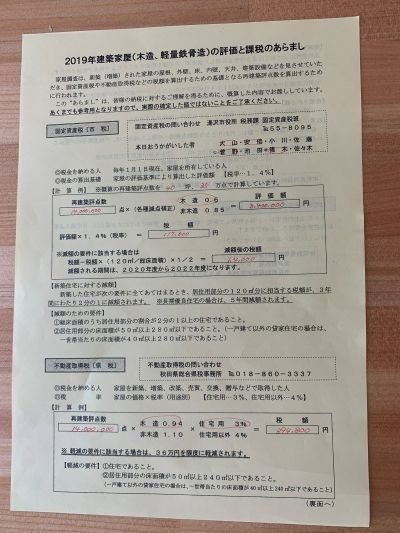 2019年建築家屋（木造、軽量鉄骨造）の評価と課税のあらまし
家屋調査は、新築（増築）された家屋の屋根、外壁、床、内壁、天井、建築設備などを見させていただき、
固定資産税や不動産取得税などの税額を算出するための基礎となる再建築評点数を算出するために行われます。
この“あらまし”は、皆様の納税に対するご理解を得るために、概算した内容でお渡ししています。
あくまでも参考用となりますので、実際の確定した額ではないことをご了承ください。
固定資産税【市 税】
固定資産税の問い合わせ 湯沢市役所 税務課 固定資産税班
℡55－8095
本日おうかがいした者
◎税金を納める人 毎年1月1日現在、家屋を所有している人
◎税金の算出基礎 家屋の評価基準により算出した評価額 【税率…1．4％】
【計 算 例】
再建築評点数
14,000,000 点×（各種減点補正）
木 造 0.6
非木造 0.85
＝ 評 価 額
8,400,000 円
評価額×1．4％（税率）＝
税 額
117,600 円
※減額の要件に該当する場合は
税額－税額×（120㎡／総床面積）×1／2 ＝
減額後の税額
円
減額される期間は、2020年度から2022年度になります。
【新築住宅に対する減額】
新築した住宅が次の要件に全てあてはまるとき、居住用部分の120㎡分に相当する税額が、3年
間にわたり2分の1に減額されます。※長期優良住宅の場合は、5年間減額されます。
【減額のための要件】
①総床面積のうち居住用部分の割合が2分の1以上の住宅であること。
②居住用部分の床面積が50㎡以上280㎡以下であること。（一戸建て以外の貸家住宅の場合は、
一世帯当たりの床面積が40㎡以上280㎡以下であること）
不動産取得税【県 税】
不動産取得税の問い合わせ
秋田県総合県税事務所 ℡018－860－3337
◎税金を納める人 家屋を新築、増築、改築、売買、交換、贈与などで取得した人
◎税 率 家屋の価格×税率（用途別） 【住宅用…3％、住宅用以外…4％】
【計 算 例】
再建築評点数
14,000,000 点 ×
木 造 0.94
非木造 1.10
×
住 宅 用 3％
住宅用以外 4％
＝
税 額
394,800 円
※ 軽減の要件に該当する場合は、36万円を限度に軽減されます。
【軽減の要件】①住宅であること。
②居住用部分の床面積が50㎡以上240㎡以下であること。
（一戸建て以外の貸家住宅の場合は、一世帯当たりの床面積が40㎡以上240㎡以下であること）
（裏面へ）